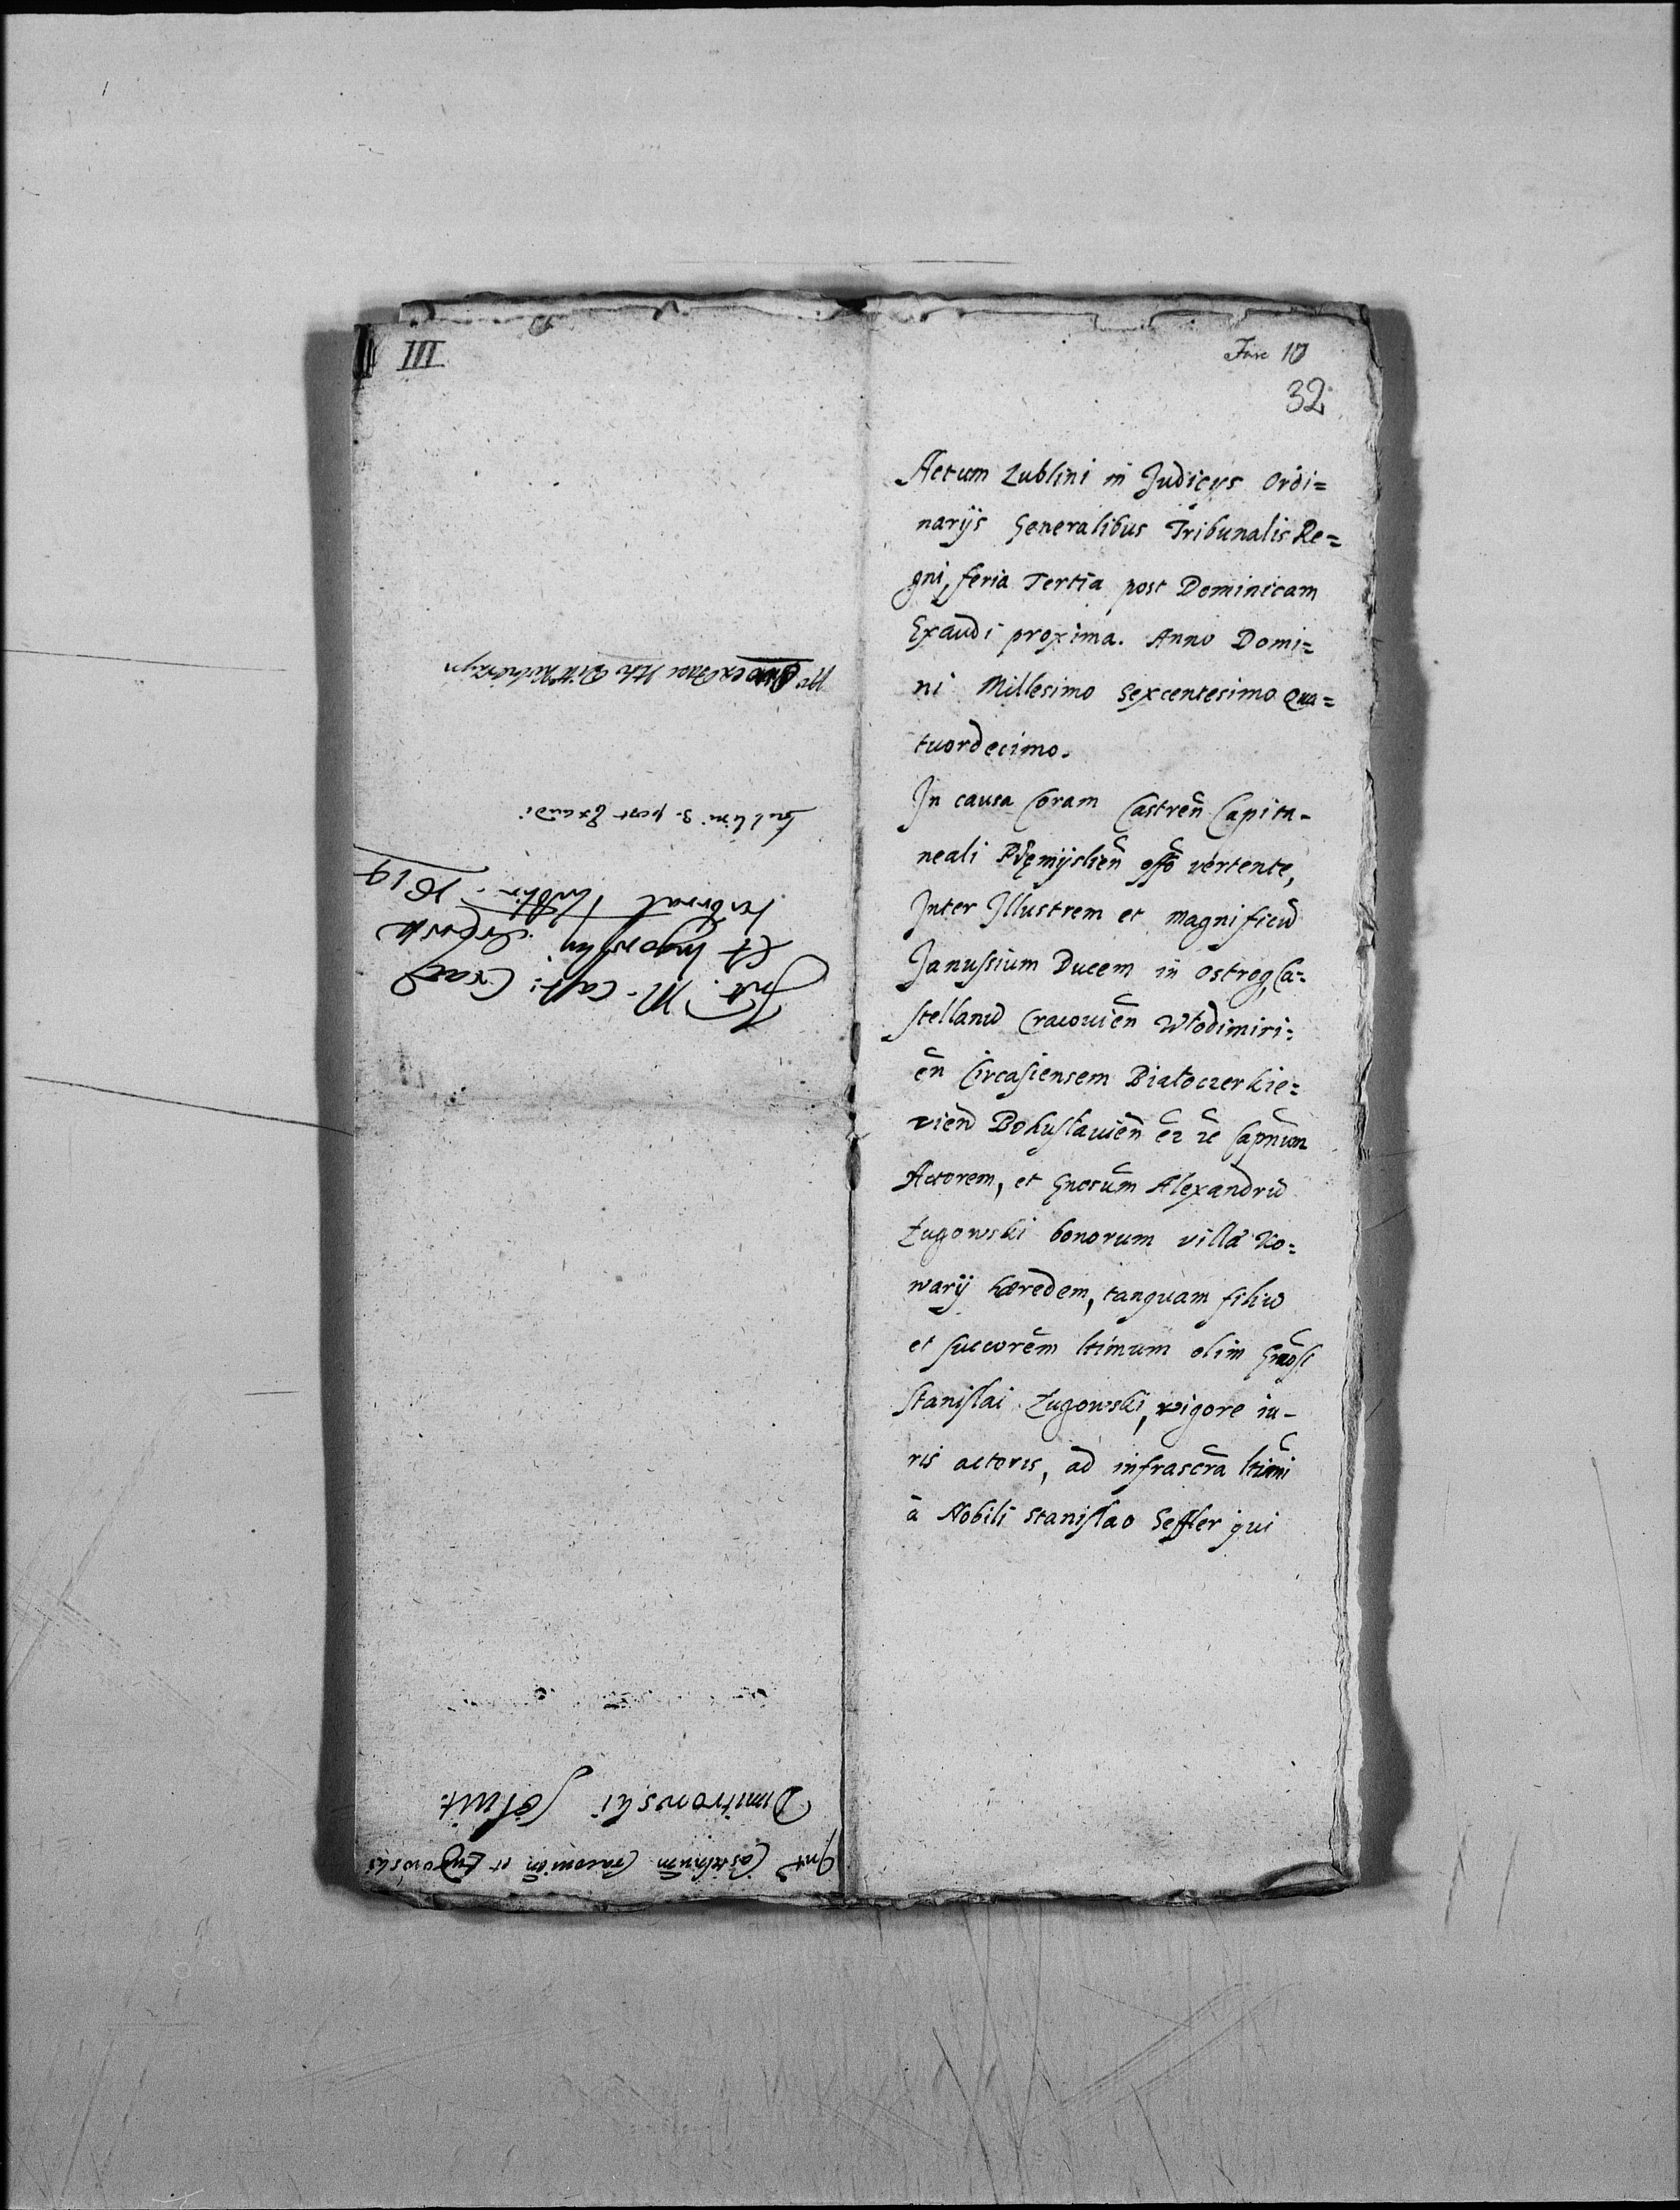 III
Fasc 10
32
Actum Lublini in Judicijs Ordi=
narijs Generalibus Tribunalis Re=
gni, feria Tertia post Dominicam
Exaudi proxima. Anno Domi=
ni Millesimo Sexcentesimo Qua=
tuordecimo.
In causa Coram Castren̄ Capita-
neali Pręmijslien̄ offō vertente,
Inter Illustrem et magnificū
Janussium Ducem in Ostrog, Ca=
stellanū Cracovien̄ Włodimiri=
en̄ Circasiensem Białoczerkie=
vien̄ Bohuslavien̄ etc Capnūm
Actorem, et Gnosūm Alexandrū
Ługowski bonorum villæ Ko=
wary hæredem, tanquam filiū
et succorēm ltimum olim Gnosi
Stanislai Ługowski, vigore iu-
ris actoris, ad infrascrā ltimi
à Nobili Stanislao Seffler qui
Lublini 3. post Exaudi
Int. M. Cast. Crac
et Lugowski
Tribunal Lublin. 1619
Int Castellanum̄ Cracovien̄ et Ługowski
Dmitrowski solvit.